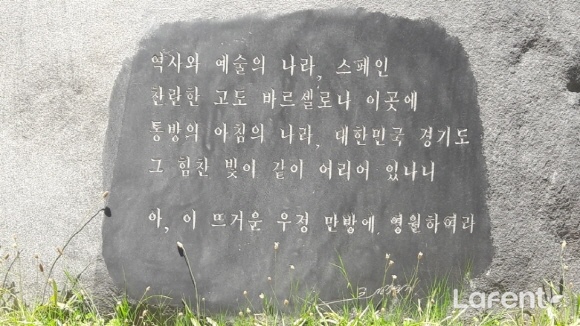 역사와 예술의 나라, 스페인
찬란한 고도 바르셀로나 이곳에
동방의 아침의 나라, 대한민국 경기도
그 힘찬 빛이 같이 어리어 있나니
아, 이 뜨거운 우정 만방에 영원하여라
Lafent